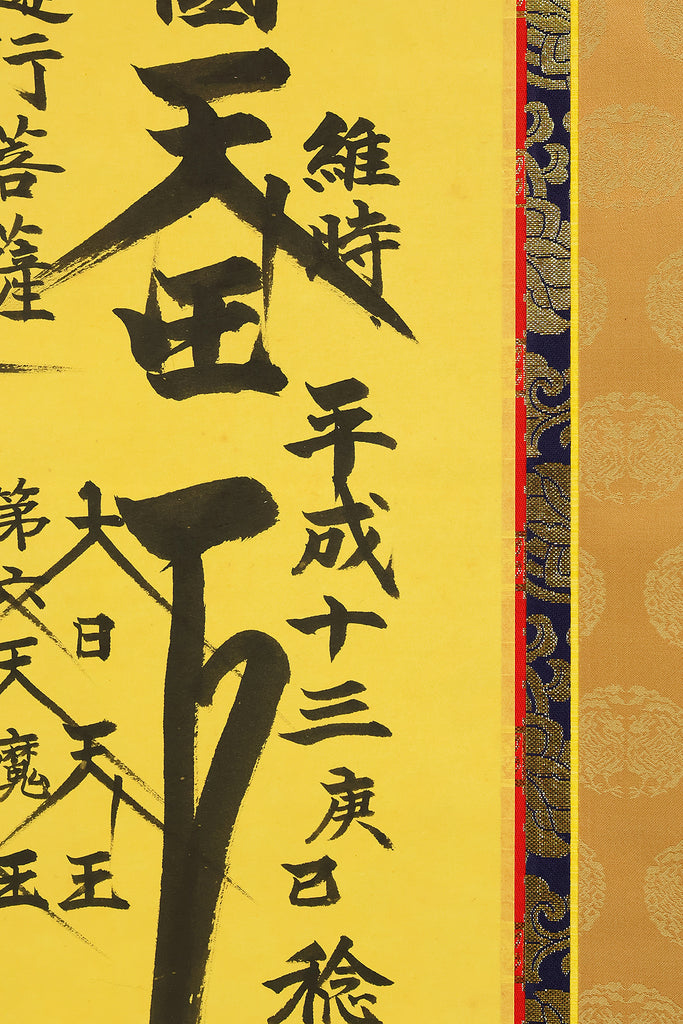 維時 平成十三庚巳稔
國天王
大日天王
行菩薩
第六天魔王